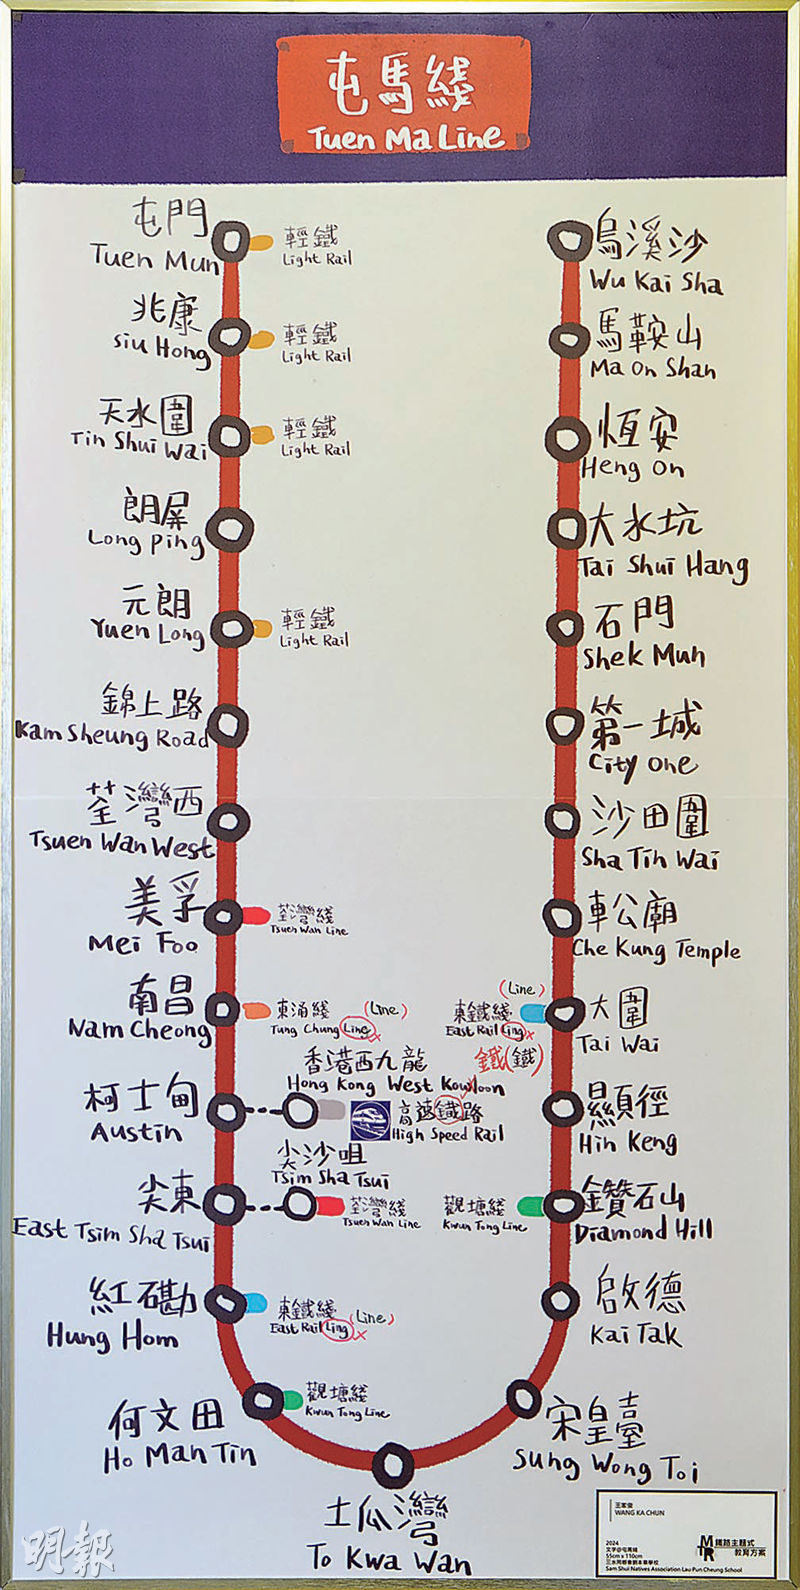 屯馬綫
Tuen Ma Line
屯門
Tuen Mun
輕鐵
Light Rail
兆康
Siu Hong
輕鐵
Light Rail
天水圍
Tin Shui Wai
輕鐵
Light Rail
朗屏
Long Ping
元朗
Yuen Long
輕鐵
Light Rail
錦上路
Kam Sheung Road
荃灣西
Tsuen Wan West
美孚
Mei Foo
荃灣綫
Tsuen Wan Line
南昌
Nam Cheong
東涌綫
(Line)
Tung Chung Line
柯士甸
Austin
香港西九龍
Hong Kong West Kowloon
高速鐵路
High Speed Rail
尖東
East Tsim Sha Tsui
尖沙咀
Tsim Sha Tsui
荃灣綫
Tsuen Wan Line
紅磡
Hung Hom
東鐵綫
(Line)
East Rail Ling
何文田
Ho Man Tin
觀塘綫
Kwun Tong Line
土瓜灣
To Kwa Wan
烏溪沙
Wu Kai Sha
馬鞍山
Ma On Shan
恆安
Heng On
大水坑
Tai Shui Hang
石門
Shek Mun
第一城
City One
沙田圍
Sha Tin Wai
車公廟
Che Kung Temple
大圍
Tai Wai
(Line)
東鐵綫
East Rail Ling
鐵(鐵)
顯徑
Hin Keng
鑽石山
Diamond Hill
觀塘綫
Kwun Tong Line
啟德
Kai Tak
宋皇臺
Sung Wong Toi
王家俊
WANG KA CHUN
2024
文字@屯馬綫
55cm x 110cm
三水同鄉會劉本章學校
Sam Shui Natives Association Lau Pun Cheung School
MTR
鐵路主題式
教育方案
明報